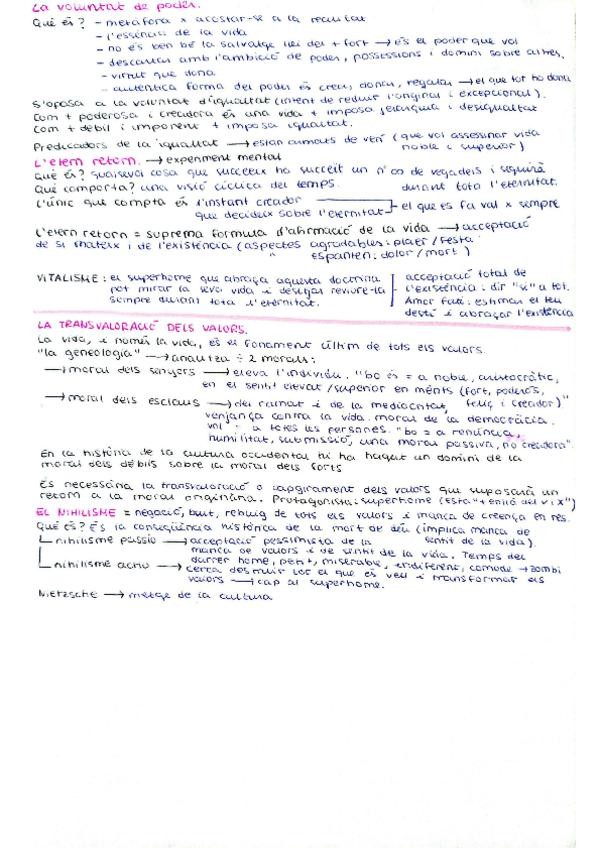 La voluntat de poder.
Què és? - metàfora x acostar-se a la realitat
- l'essència de la vida
- no és ben bé la salvatge llei del + fort → és el poder que vol
- descartar amb l'ambició de poder, possessions i domini sobre altres.
- virtut que dona
- autèntica forma del poder és crear, donar, regalar → el que tot ho dona
S'oposa a la voluntat d'igualtat (intent de reduir l'original i excepcional).
Com + poderosa i creadora és una vida + imposa jerarquia i desigualtat
Com + dèbil i impotent + imposa igualtat.
Predicadors de la igualtat → estan armats de verí (que vol assassinar vida noble i superior)
L'etern retorn. → experiment mental
Què és? qualsevol cosa que succeeix ha succeït un nº ∞ de vegades i seguirà
Què comporta? una visió cíclica del temps. durant tota l'eternitat.
L'únic que compta és l'instant creador
que decideix sobre l'eternitat → el que es fa val x sempre
L'etern retorn = suprema fórmula d'afirmació de la vida → acceptació
de si mateix i de l'existència (aspectes agradables: plaer/festa
" espanten: dolor/mort)
VITALISME: el superhome que abraça aquesta doctrina
pot mirar la seva vida i desitjar reviure-la
sempre durant tota l'eternitat.
acceptació total de
l'existència: dir "sí" a tot.
Amor fati: estimar el teu
destí i abraçar l'existència
LA TRANSVALORACIÓ DELS VALORS.
La vida, i només la vida, és el fonament últim de tots els valors.
"la geneologia" → analitza ÷ 2 morals:
→ moral dels senyors → eleva l'individu. "bo és = a noble, aristocràtic,
en el sentit elevat/superior en mèrits (fort, poderós,
feliç i creador)"
→ moral dels esclaus → del ramat i de la mediocritat,
venjança contra la vida. moral de la democràcia.
vol = a totes les persones. "bo = a renúncia,
humilitat, submissió, una moral passiva, no creadora".
En la història de la cultura occidental hi ha hagut un domini de la
moral dels dèbils sobre la moral dels forts
És necessària la transvaloració o capgirament dels valors que suposarà un
retorn a la moral originària. Protagonista: superhome
EL NIHILISME = negació, buit, rebuig de tots els valors i manca de creença en res.
Què és? És la conseqüència històrica de la mort de déu (implica manca de
sentit de la vida).
nihilisme passiu → acceptació pessimista de la
manca de valors i de sentit de la vida. Temps del
darrer home, petit, miserable, indiferent, còmode → zombi
nihilisme actiu → cerca destruir tot el que és vell i transformar els
valors → cap al superhome.
Nietzsche → metge de la cultura